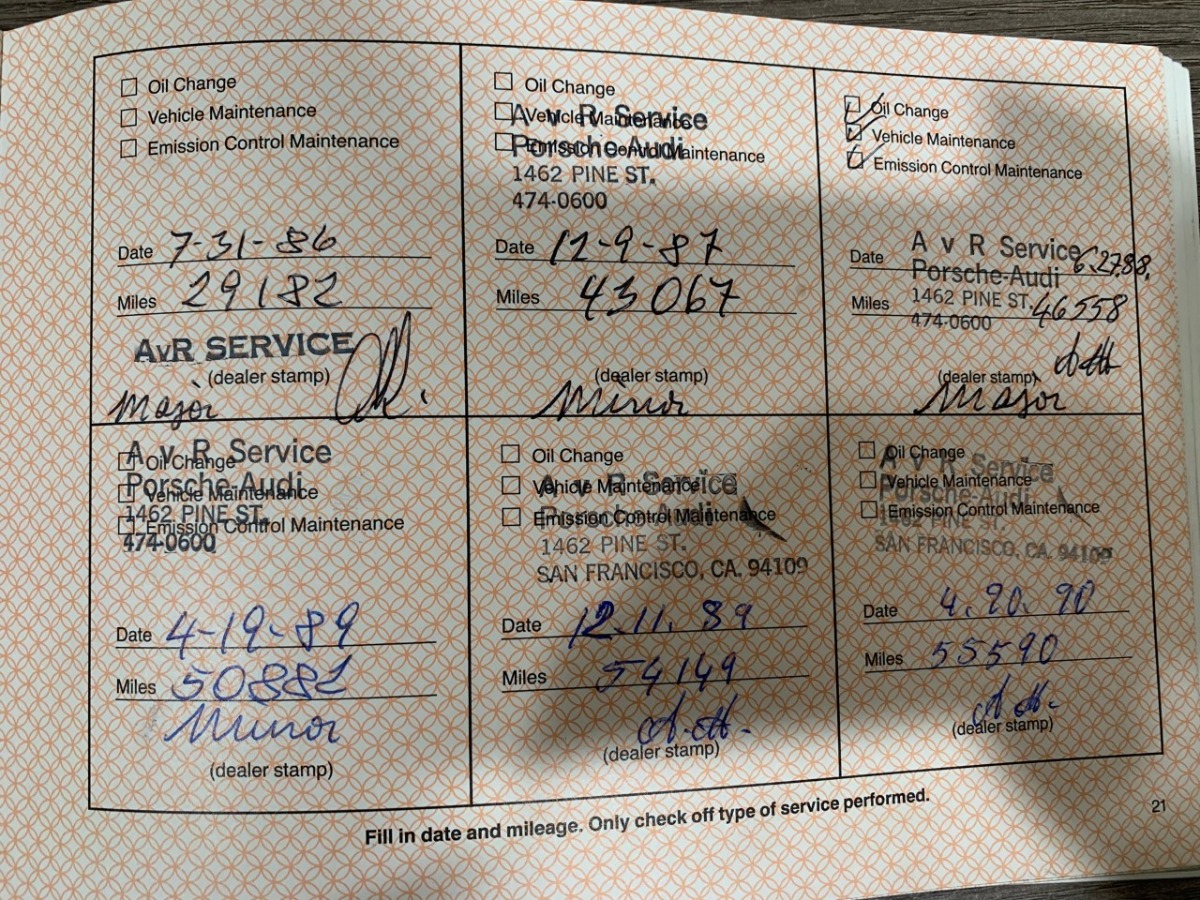 Oil Change
Vehicle Maintenance
Emission Control Maintenance
Date 7-31-86
Miles 29182
AvR SERVICE
(dealer stamp)
Major
Oil Change
Vehicle Maintenance
Emission Control Maintenance
A v R Service
Porsche-Audi
1462 PINE ST.
474-0600
Date 12-9-87
Miles 43067
(dealer stamp)
Minor
Oil Change
Vehicle Maintenance
Emission Control Maintenance
A v R Service
Porsche-Audi
1462 PINE ST.
474-0600
Date 6.27.88.
Miles 46558
(dealer stamp)
Major
Oil Change
Vehicle Maintenance
Emission Control Maintenance
A v R Service
Porsche-Audi
1462 PINE ST.
474-0600
Date 4-19-89
Miles 50882
Minor
(dealer stamp)
Oil Change
Vehicle Maintenance
Emission Control Maintenance
A v R Service
Porsche-Audi
1462 PINE ST.
SAN FRANCISCO, CA. 94109
Date 12.11.89
Miles 54149
(dealer stamp)
Oil Change
Vehicle Maintenance
Emission Control Maintenance
A v R Service
Porsche-Audi
1462 PINE ST.
SAN FRANCISCO, CA. 94109
Date 4.20.90
Miles 55590
(dealer stamp)
Fill in date and mileage. Only check off type of service performed.
21